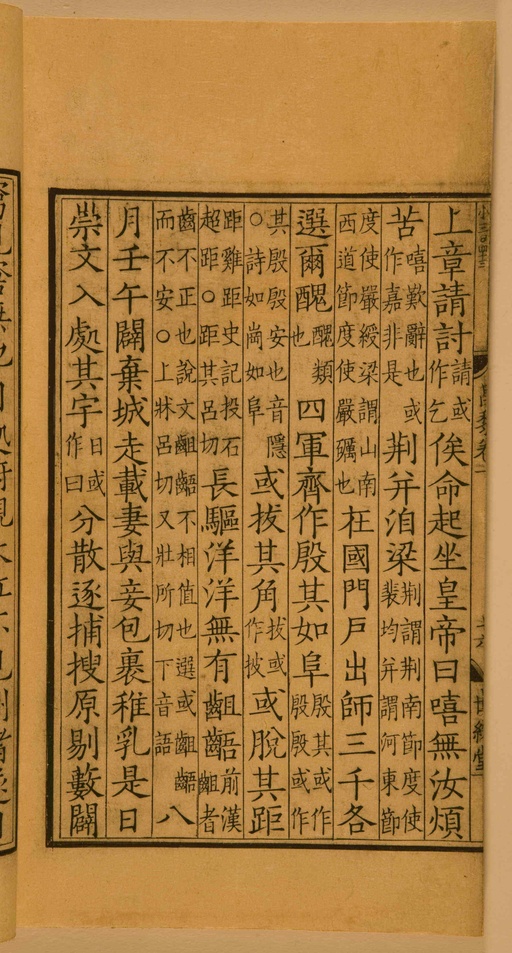 世綵堂
上章請討請或作乞俟命起坐皇帝曰嘻無汝煩
苦嘻歎辭也或作嘉非是荆并洎梁荆謂荆南節度使裴均并謂河東節
度使嚴綬梁謂山南西道節度使嚴礪也在國門戶出師三千各
選爾醜醜類也四軍齊作殷其如阜殷其或作殷殷或作
其殷殷安也音隱〇詩如崗如阜或拔其角拔或作披或脫其距
距雞距史記投石超距〇距其呂切長驅洋洋無有齟齬前漢齟者
齒不正也說文齟齬不相值也選或齟齬而不安〇上牀呂切又壯所切下音語八
月壬午闢棄城走載妻與妾包裹稚乳是日
崇文入處其宇日或作曰分散逐捕搜原剔藪闢